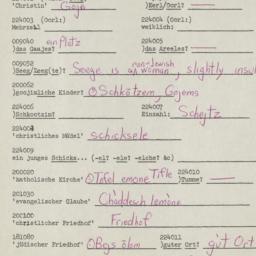 'Christin' Goja )Kerl/Dorl? ———
224003 (Gorl:) 224004 (Gorl:)
Mehrzahl weiblich:
009040 einplotz 224005
)das Gaajes? )das Areeles? ———
009052 non-Jewish
)Seeg/Zeeg(te)? Seege is a woman, slightly insul
200052
)gojische Kinder? Schkotzem, Gojems
224005 224007
)Schkootzim? Einzahl: Schejtz
224008
'christliches Mädel' schicksele
224009
ein junges Schicks... (-el? -ele? -elche? &c)
200020 Tifle 224010
'katholische Kirche' Tifel emone )Tumme? ———
201030
'evangelischer Glaube' Chaddewh lemone
200100
'christlicher Friedhof' Friedhof
181080 224011
'jüdischer Friedhof' Bejs olem )guter Ort? gut Ort